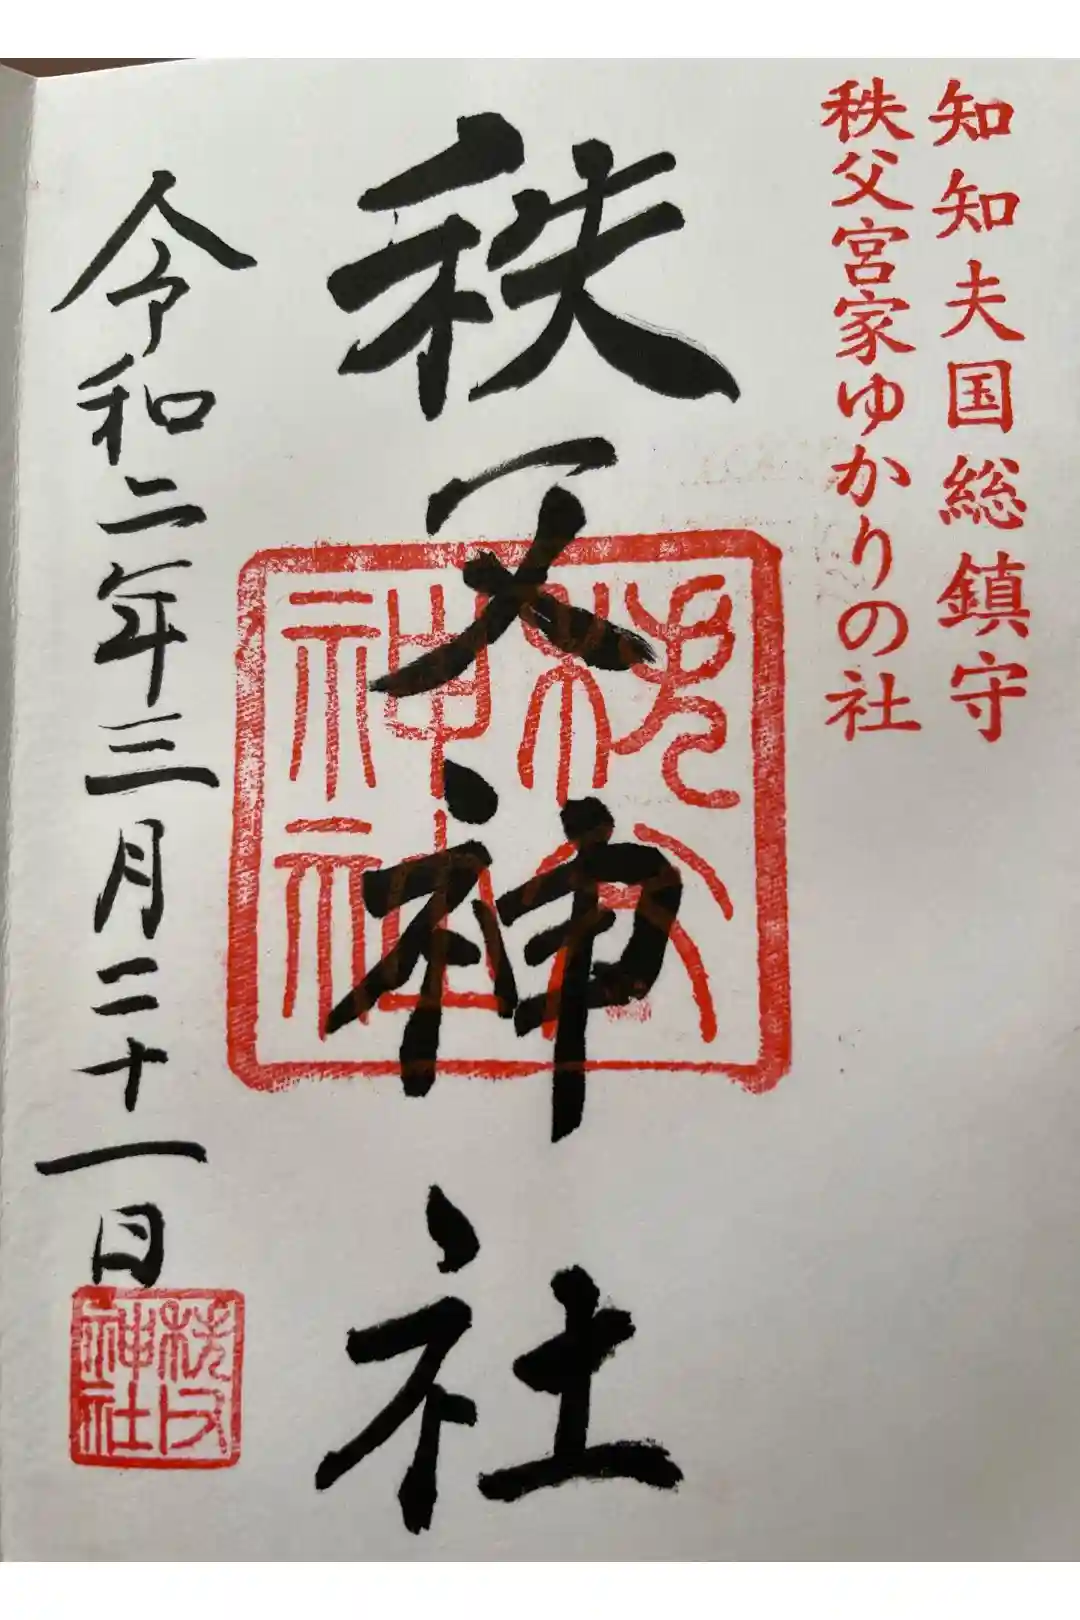 知知夫国総鎮守
秩父宮家ゆかりの社
秩父神社
秩父神社
令和二年三月二十一日
秩父神社